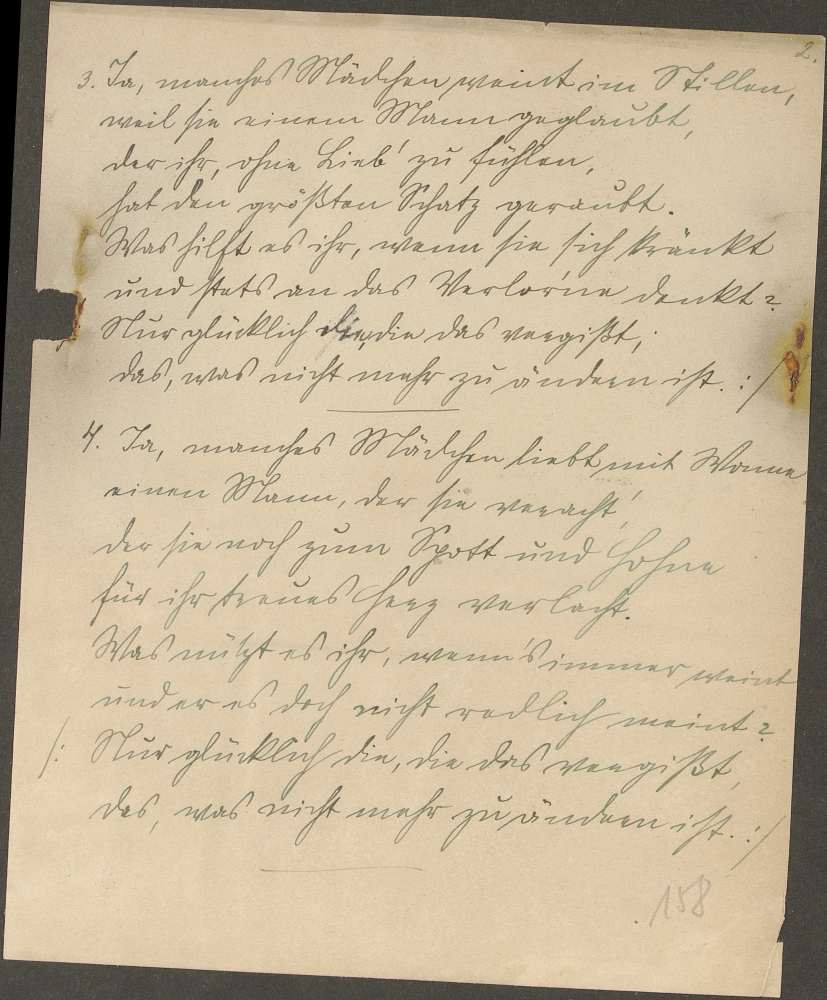 2.
3. Ja, manches Mädchen weint im Stillen,
weil sie einem Mann geglaubt,
der ihr, ohne Lieb' zu fühlen,
hat den größten Schatz geraubt.
Was hilft es ihr, wenn sie sich kränkt
und stets an das Verlor'ne denkt?
Nur glücklich die, die das vergißt,
das, was nicht mehr zu ändern ist. :/
4. Ja, manches Mädchen liebt mit Wonne
einen Mann, der sie veracht',
der sie noch zum Spott und Hohne
für ihr treues Herz verlacht.
Was nützt es ihr, wenn's immer weint
und er es doch nicht redlich meint?
/: Nur glücklich die, die das vergißt,
das, was nicht mehr zu ändern ist. :/
158